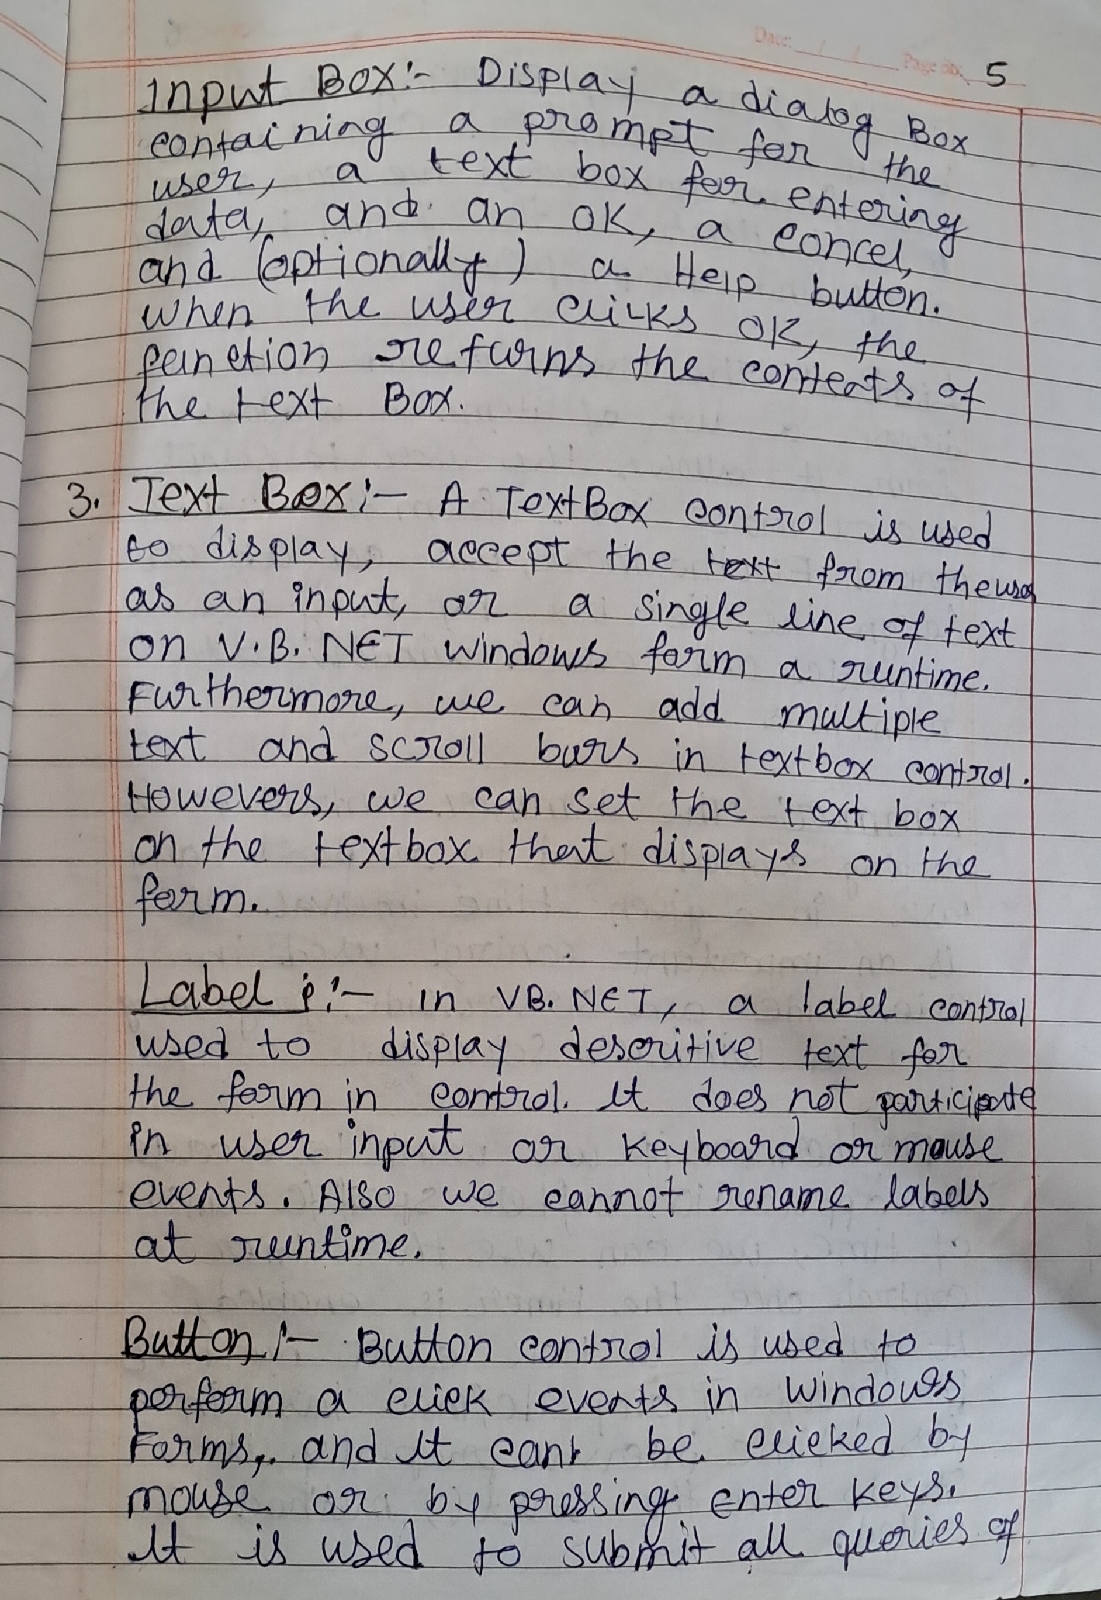 Date: / / Page No. 5
Input Box:- Display a dialog Box
containing a prompt for the
user, a text box for entering
data, and an OK, a concel,
and (optionally) a Help button.
When the user clicks OK, the
function returns the contents of
the text Box.
3. Text Box:- A TextBox control is used
to display, accept the text from the user
as an input, or a single line of text
on V.B. NET windows form a runtime.
Furthermore, we can add multiple
text and scroll bars in textbox control.
Howevers, we can set the text box
on the textbox that displays on the
form.
Label :- in VB. NET, a label control
used to display descritive text for
the form in control. It does not participate
in user input or keyboard or mouse
events. Also we cannot rename labels
at runtime.
Button :- Button control is used to
perform a click events in windows
Forms, and it can be clicked by
mouse or by pressing enter keys.
It is used to submit all queries of